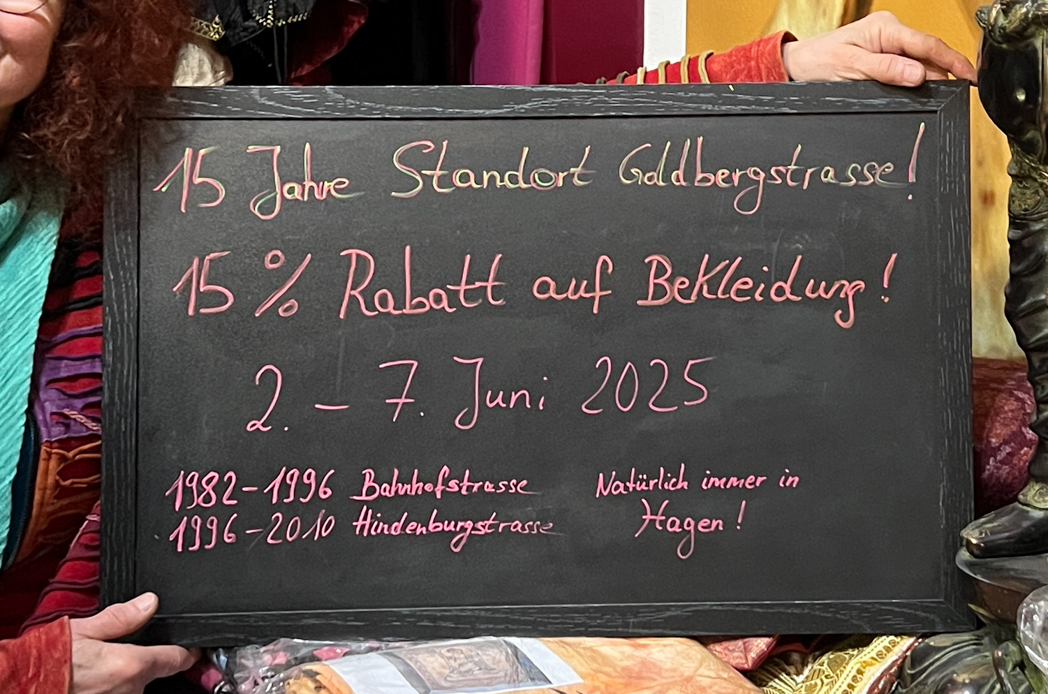 15 Jahre Standort Goldbergstrasse!
15 % Rabatt auf Bekleidung!
2. – 7. Juni 2025
1982–1996 Bahnhofstrasse
1996–2010 Hindenburgstrasse
Natürlich immer in
Hagen!